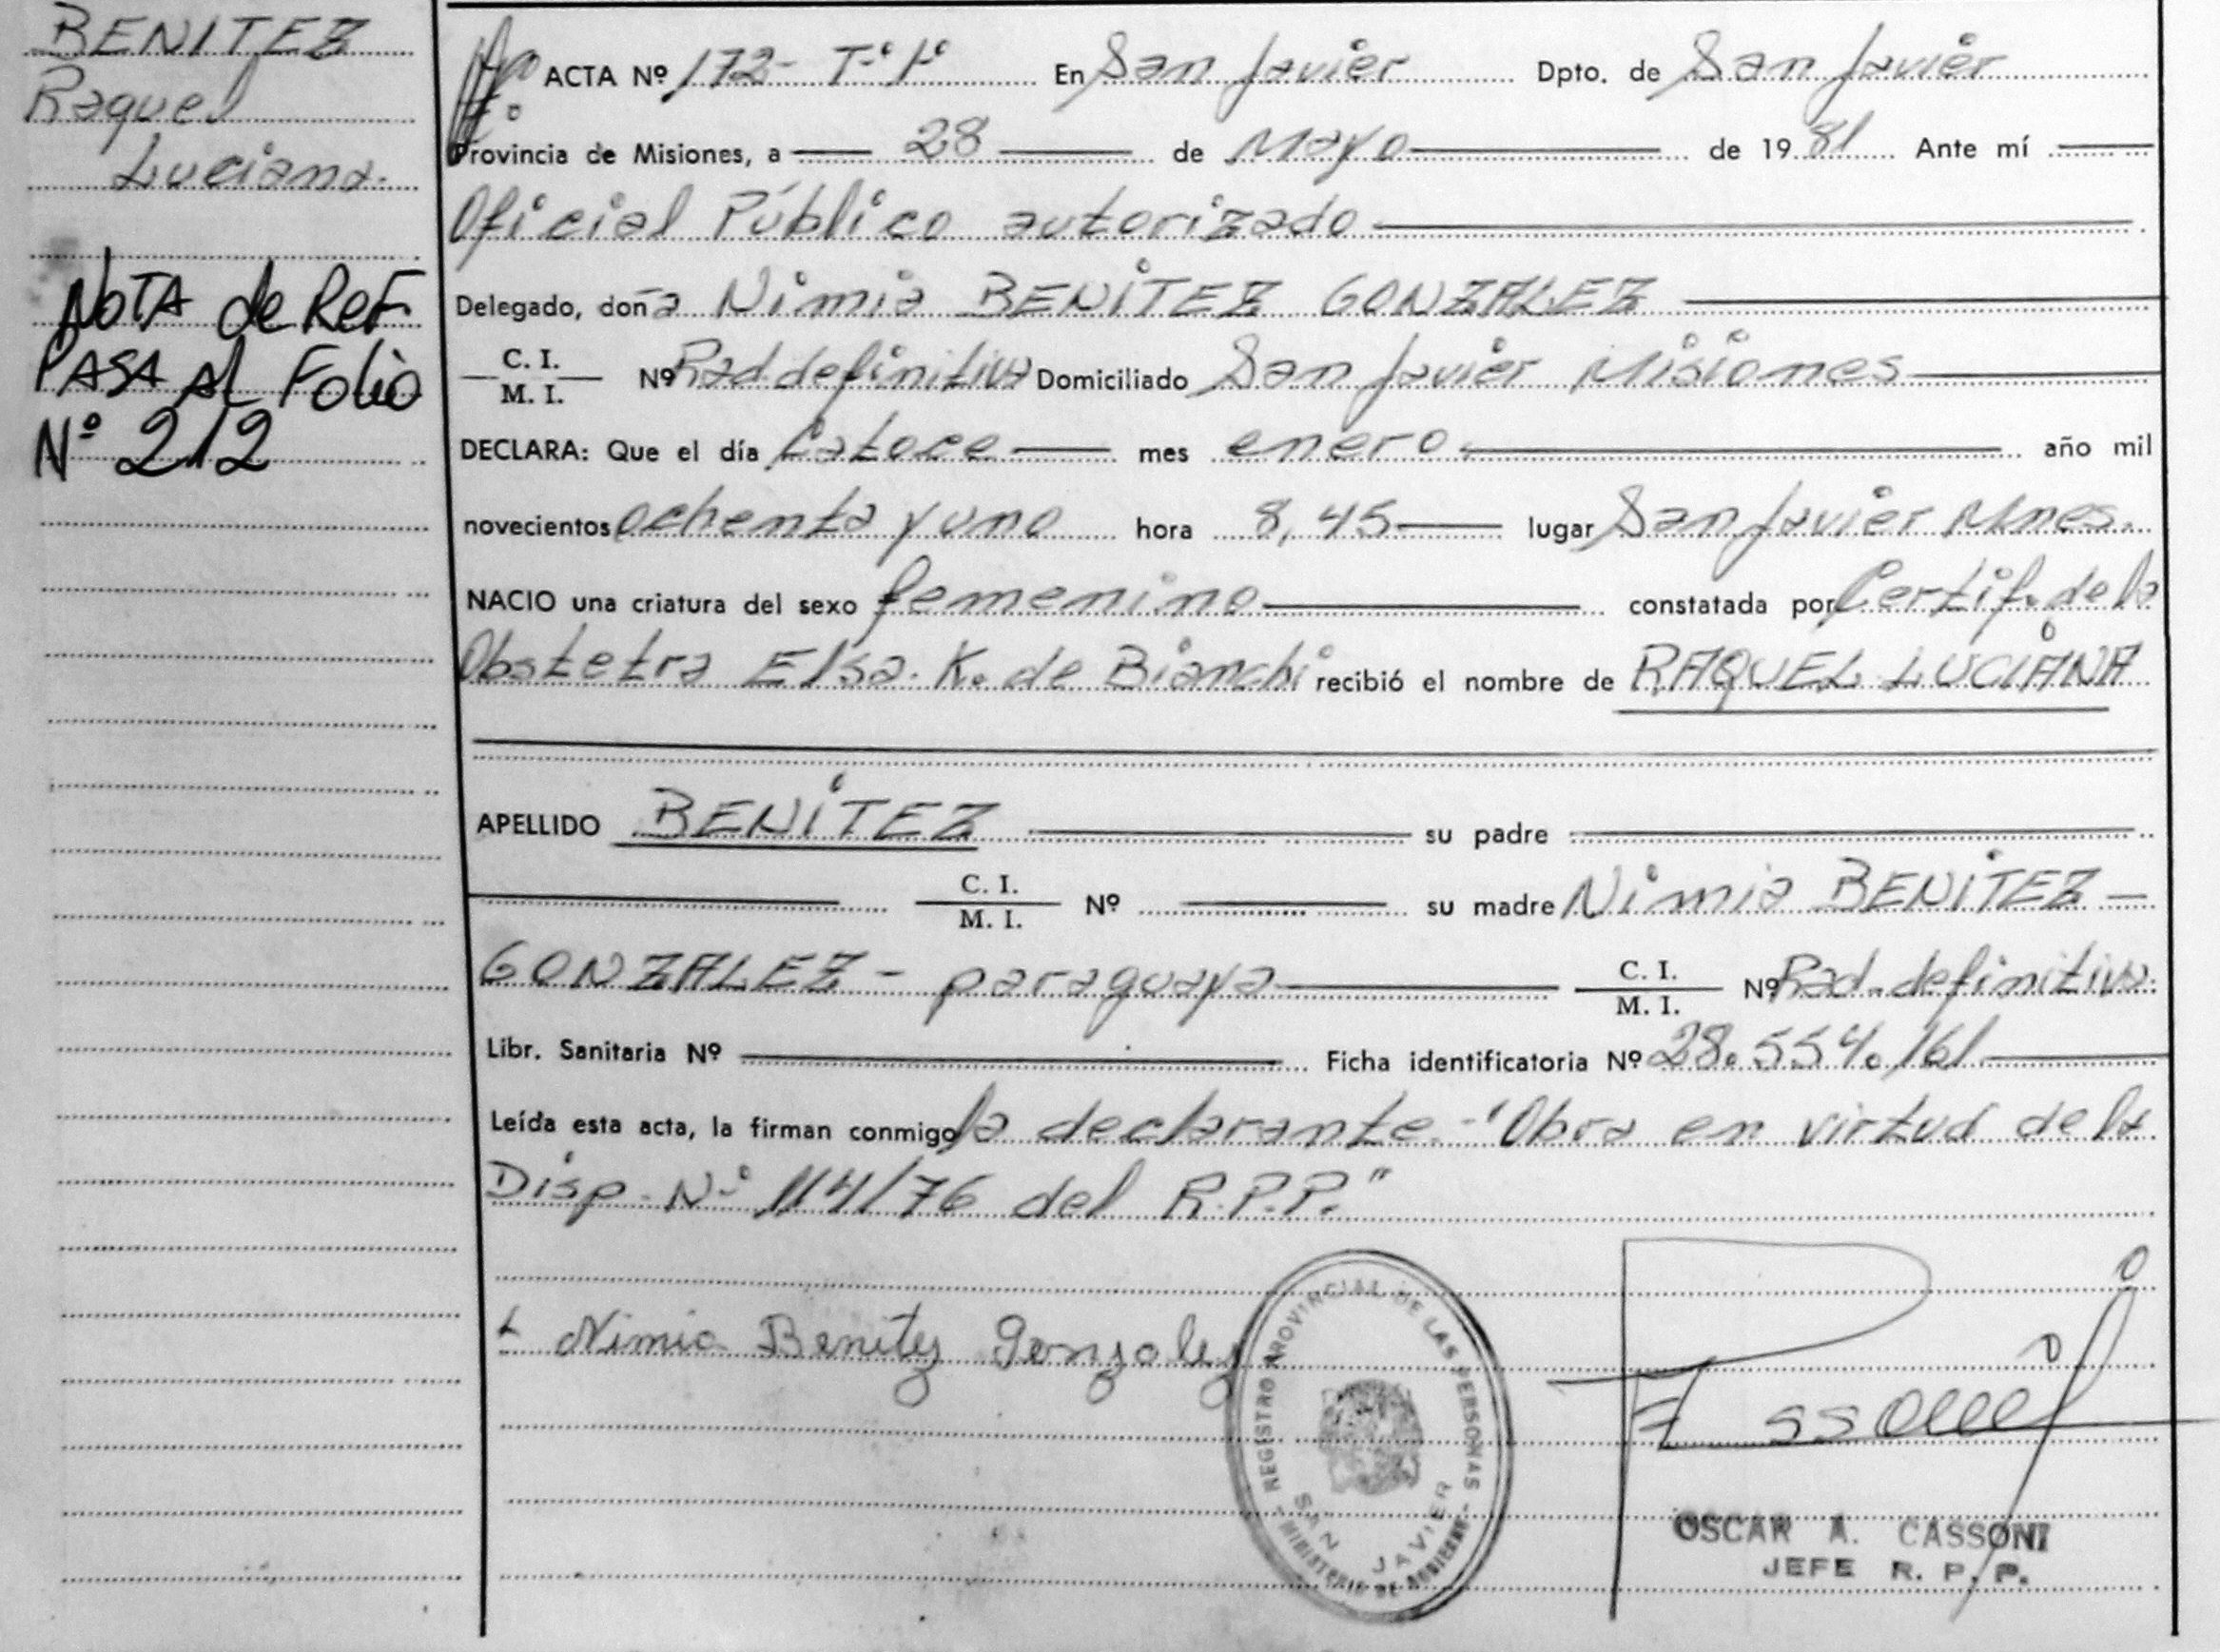 BENITEZ
Raquel
Luciana.
NOTA de REF.
PASA Al Folio
Nº 212
ACTA Nº 172- Tº 1º En San Javier Dpto. de San Javier
Provincia de Misiones, a 28 de Mayo de 19 81 Ante mí
Oficial Público autorizado
Delegado, doña Nimia BENITEZ GONZALEZ
C. I.
M. I. Nº Rad. definitiva Domiciliado San Javier Misiones
DECLARA: Que el día Catoce mes enero. año mil
novecientos ochenta y uno hora 8,45 lugar San Javier Mnes.
NACIO una criatura del sexo femenino constatada por Certif. de la
Obstetra Elsa. K. de Bianchi recibió el nombre de RAQUEL LUCIANA
APELLIDO BENITEZ su padre
C. I.
M. I. Nº su madre Nimia BENITEZ -
GONZALEZ - paraguaya C. I.
M. I. Nº Rad. definitiva.
Libr. Sanitaria Nº Ficha identificatoria Nº 28.554.161
Leída esta acta, la firman conmigo la declarante.- "Obra en virtud de la
Disp. Nº 114/76 del R.P.P."
Nimia Benitez Gonzalez
REGISTRO PROVINCIAL DE LAS PERSONAS
SAN JAVIER
- MINISTERIO DE GOBIERNO -
OSCAR A. CASSONI
JEFE R. P. P.